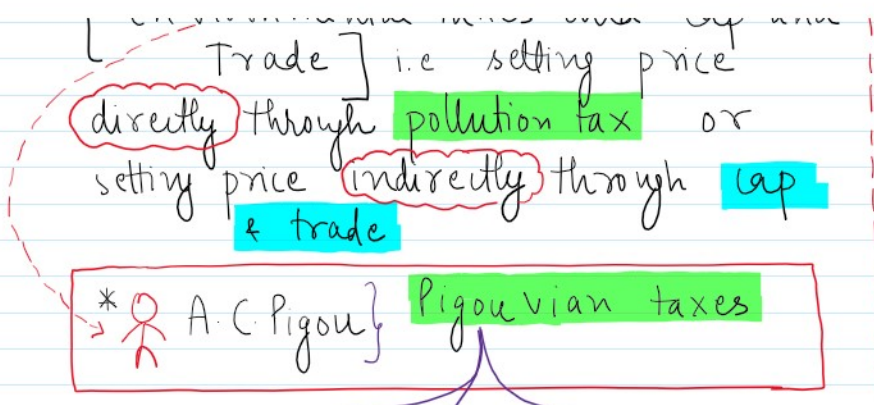 Trade] i.e setting price
directly through pollution tax or
setting price indirectly through cap
& trade
* A.C. Pigou} Pigouvian taxes